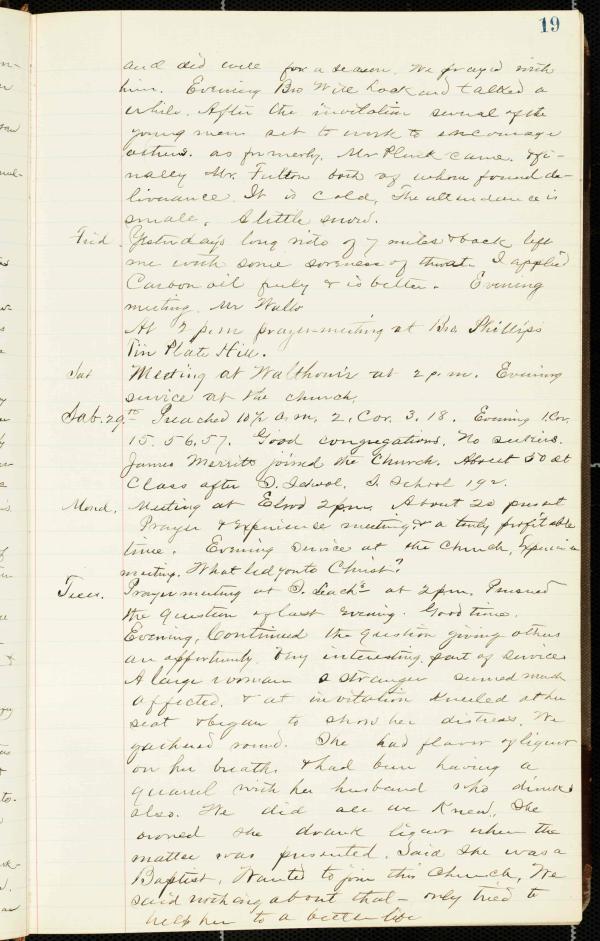 19
and did well for a season. We prayed with
him. Evening Bro Will took and talked a
while. After the invitation several of the
young men set to work to encourage
others. as formerly. Mr Pluck came. & fi-
nally Mr. Fulton both of whom found de-
liverance. It is cold, The attendance is
small. A little snow.
Frid. Yesterdays long ride of 7 miles & back left
me with some soreness of throat. I applied
Carbon oil freely & is better. Evening
meeting. Mr Walls
At 2 p.m prayer-meeting at Bro. Phillips
Tin Plate Hill.
Sat Meeting at Walthour's at 2 p.m. Evening
service at the church.
Sab. 29th Preached 10½ a.m. 2. Cor. 3. 18. Evening 1 Cor.
15. 56, 57. Good congregations. No seekers.
James Merritts joined the Church. About 50 at
Class after S. School. S. School 192.
Mond. Meeting at 2 pm. About 20 present
Prayer & experience meeting & a truly profitable
time. Evening Service at the Church, Experience
meeting. What led you to Christ?
Tues. Prayer meeting at S. Leach's at 2 pm. Pursued
the question of last evening. Good time.
Evening, Continued the question giving others
an opportunity. Very interesting part of service
A large woman a stranger seemed much
affected, & at invitation kneeled at her
seat & began to show her distress. We
gathered round. She had flavor of liquor
on her breath & had been having a
quarrel with her husband who drinks
also. We did all we knew. She
owned she drank liquor when the
matter was presented. Said she was a
Baptist. Wanted to join this Church, We
said nothing about that - only tried to
help her to a better life